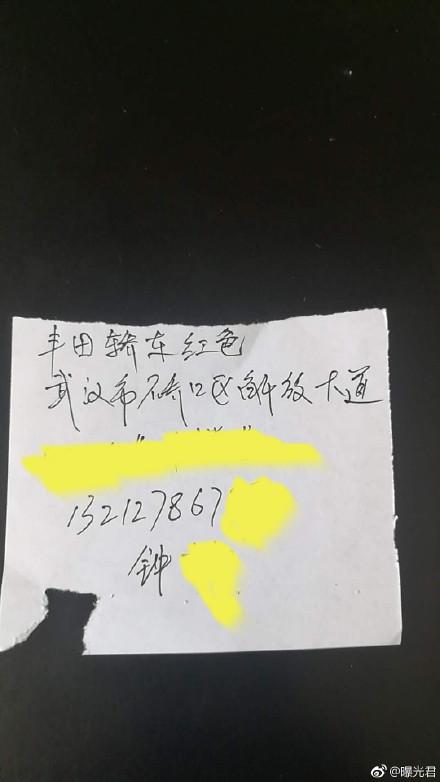 丰田轿车红色
武汉市硚口区解放大道
132127867
钟
@曝光君